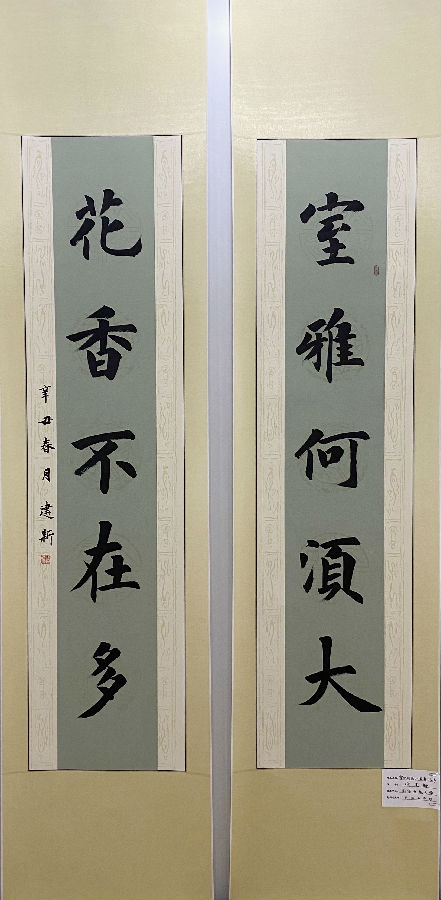 室雅何須大
花香不在多
辛丑春月建新